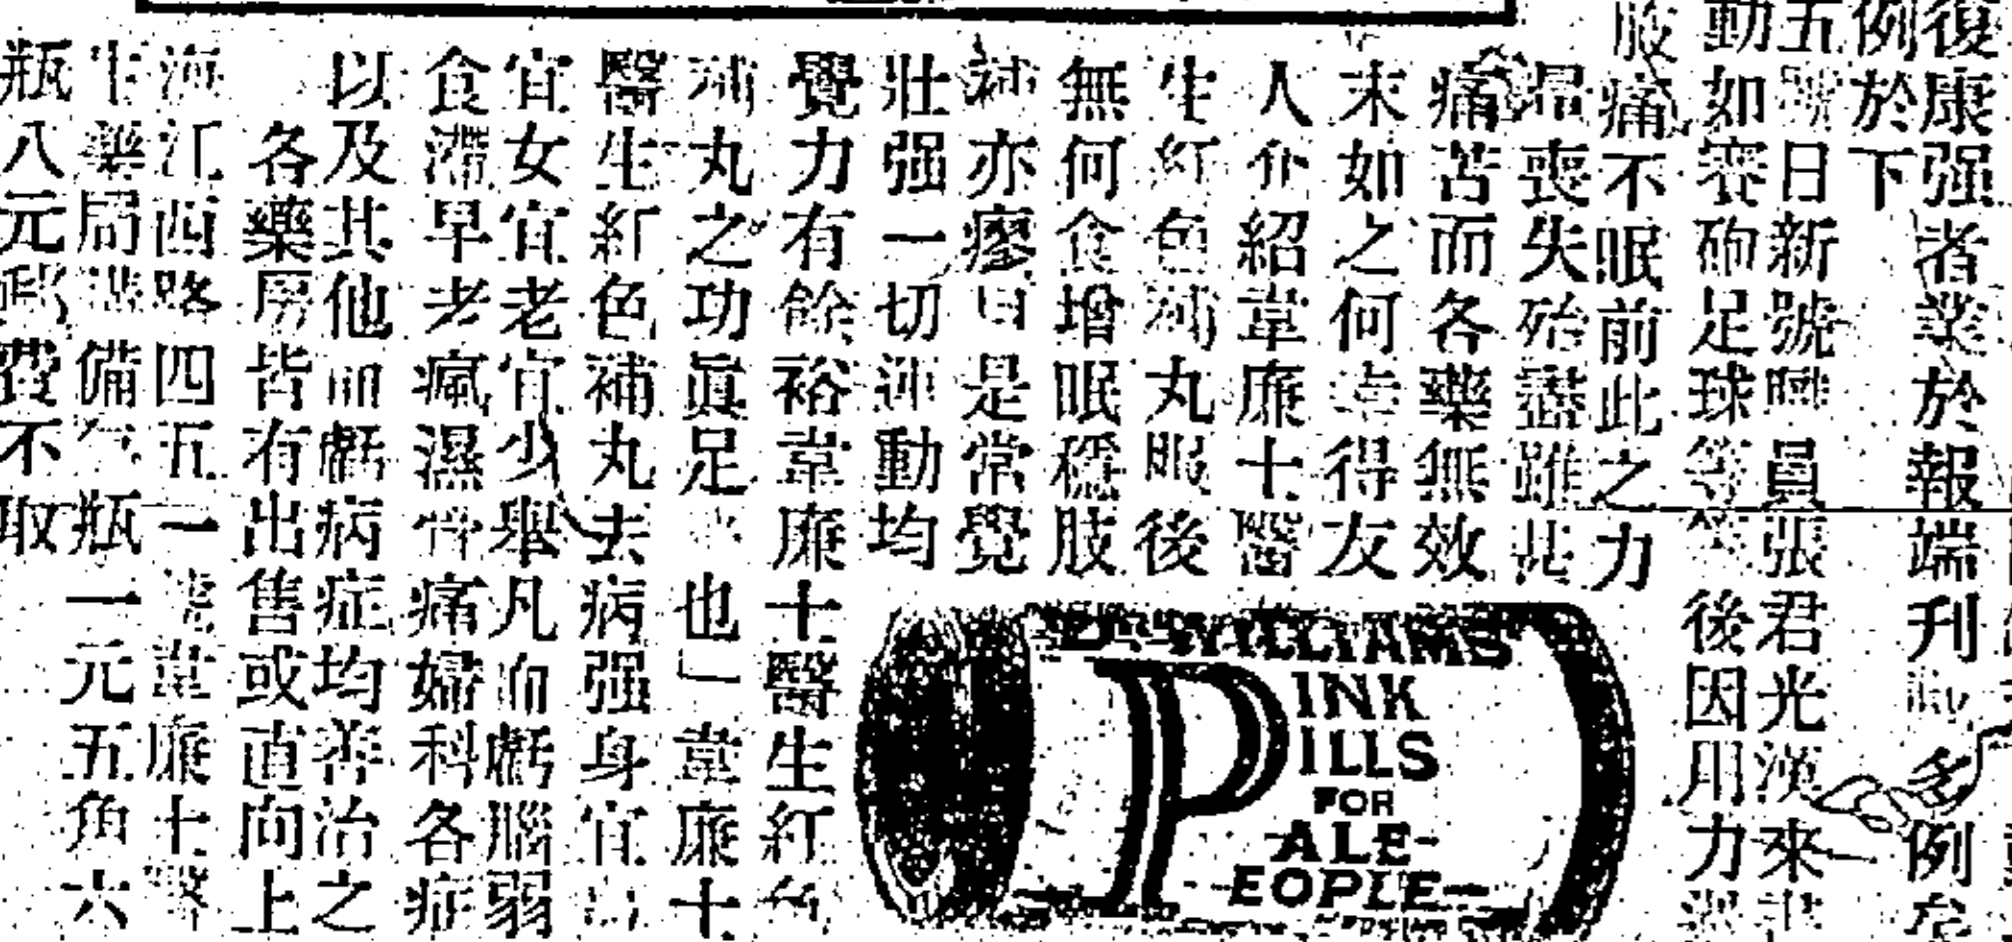 復康强者業於報端刋多例
例於下
五日新號員張君光漢來
動如賽砲足球等後因用力
肢痛不眠前此之力
喪失殆盡雖
痛苦而各藥無效
末如之何幸得友
人介紹韋廉士醫
生紅色補丸服後
無何食增眠穩肢
痛亦瘳由是常覺
壯强一切運動均
覺力有餘裕韋廉士醫生紅色
補丸之功眞足也」韋廉士
醫生紅色補丸去病强身宜
宜女宜老宜少舉凡血虧腦弱
食滯早老瘋濕骨痛婦科各症
以及其他血虧病症均善治之
各藥房皆有出售或直向上
海江西路四五一號韋廉士醫
生藥局備瓶一元五角六
瓶八元郵費不取
DR WILLIAMS
PINK
PILLS
FOR
PALE
PEOPLE